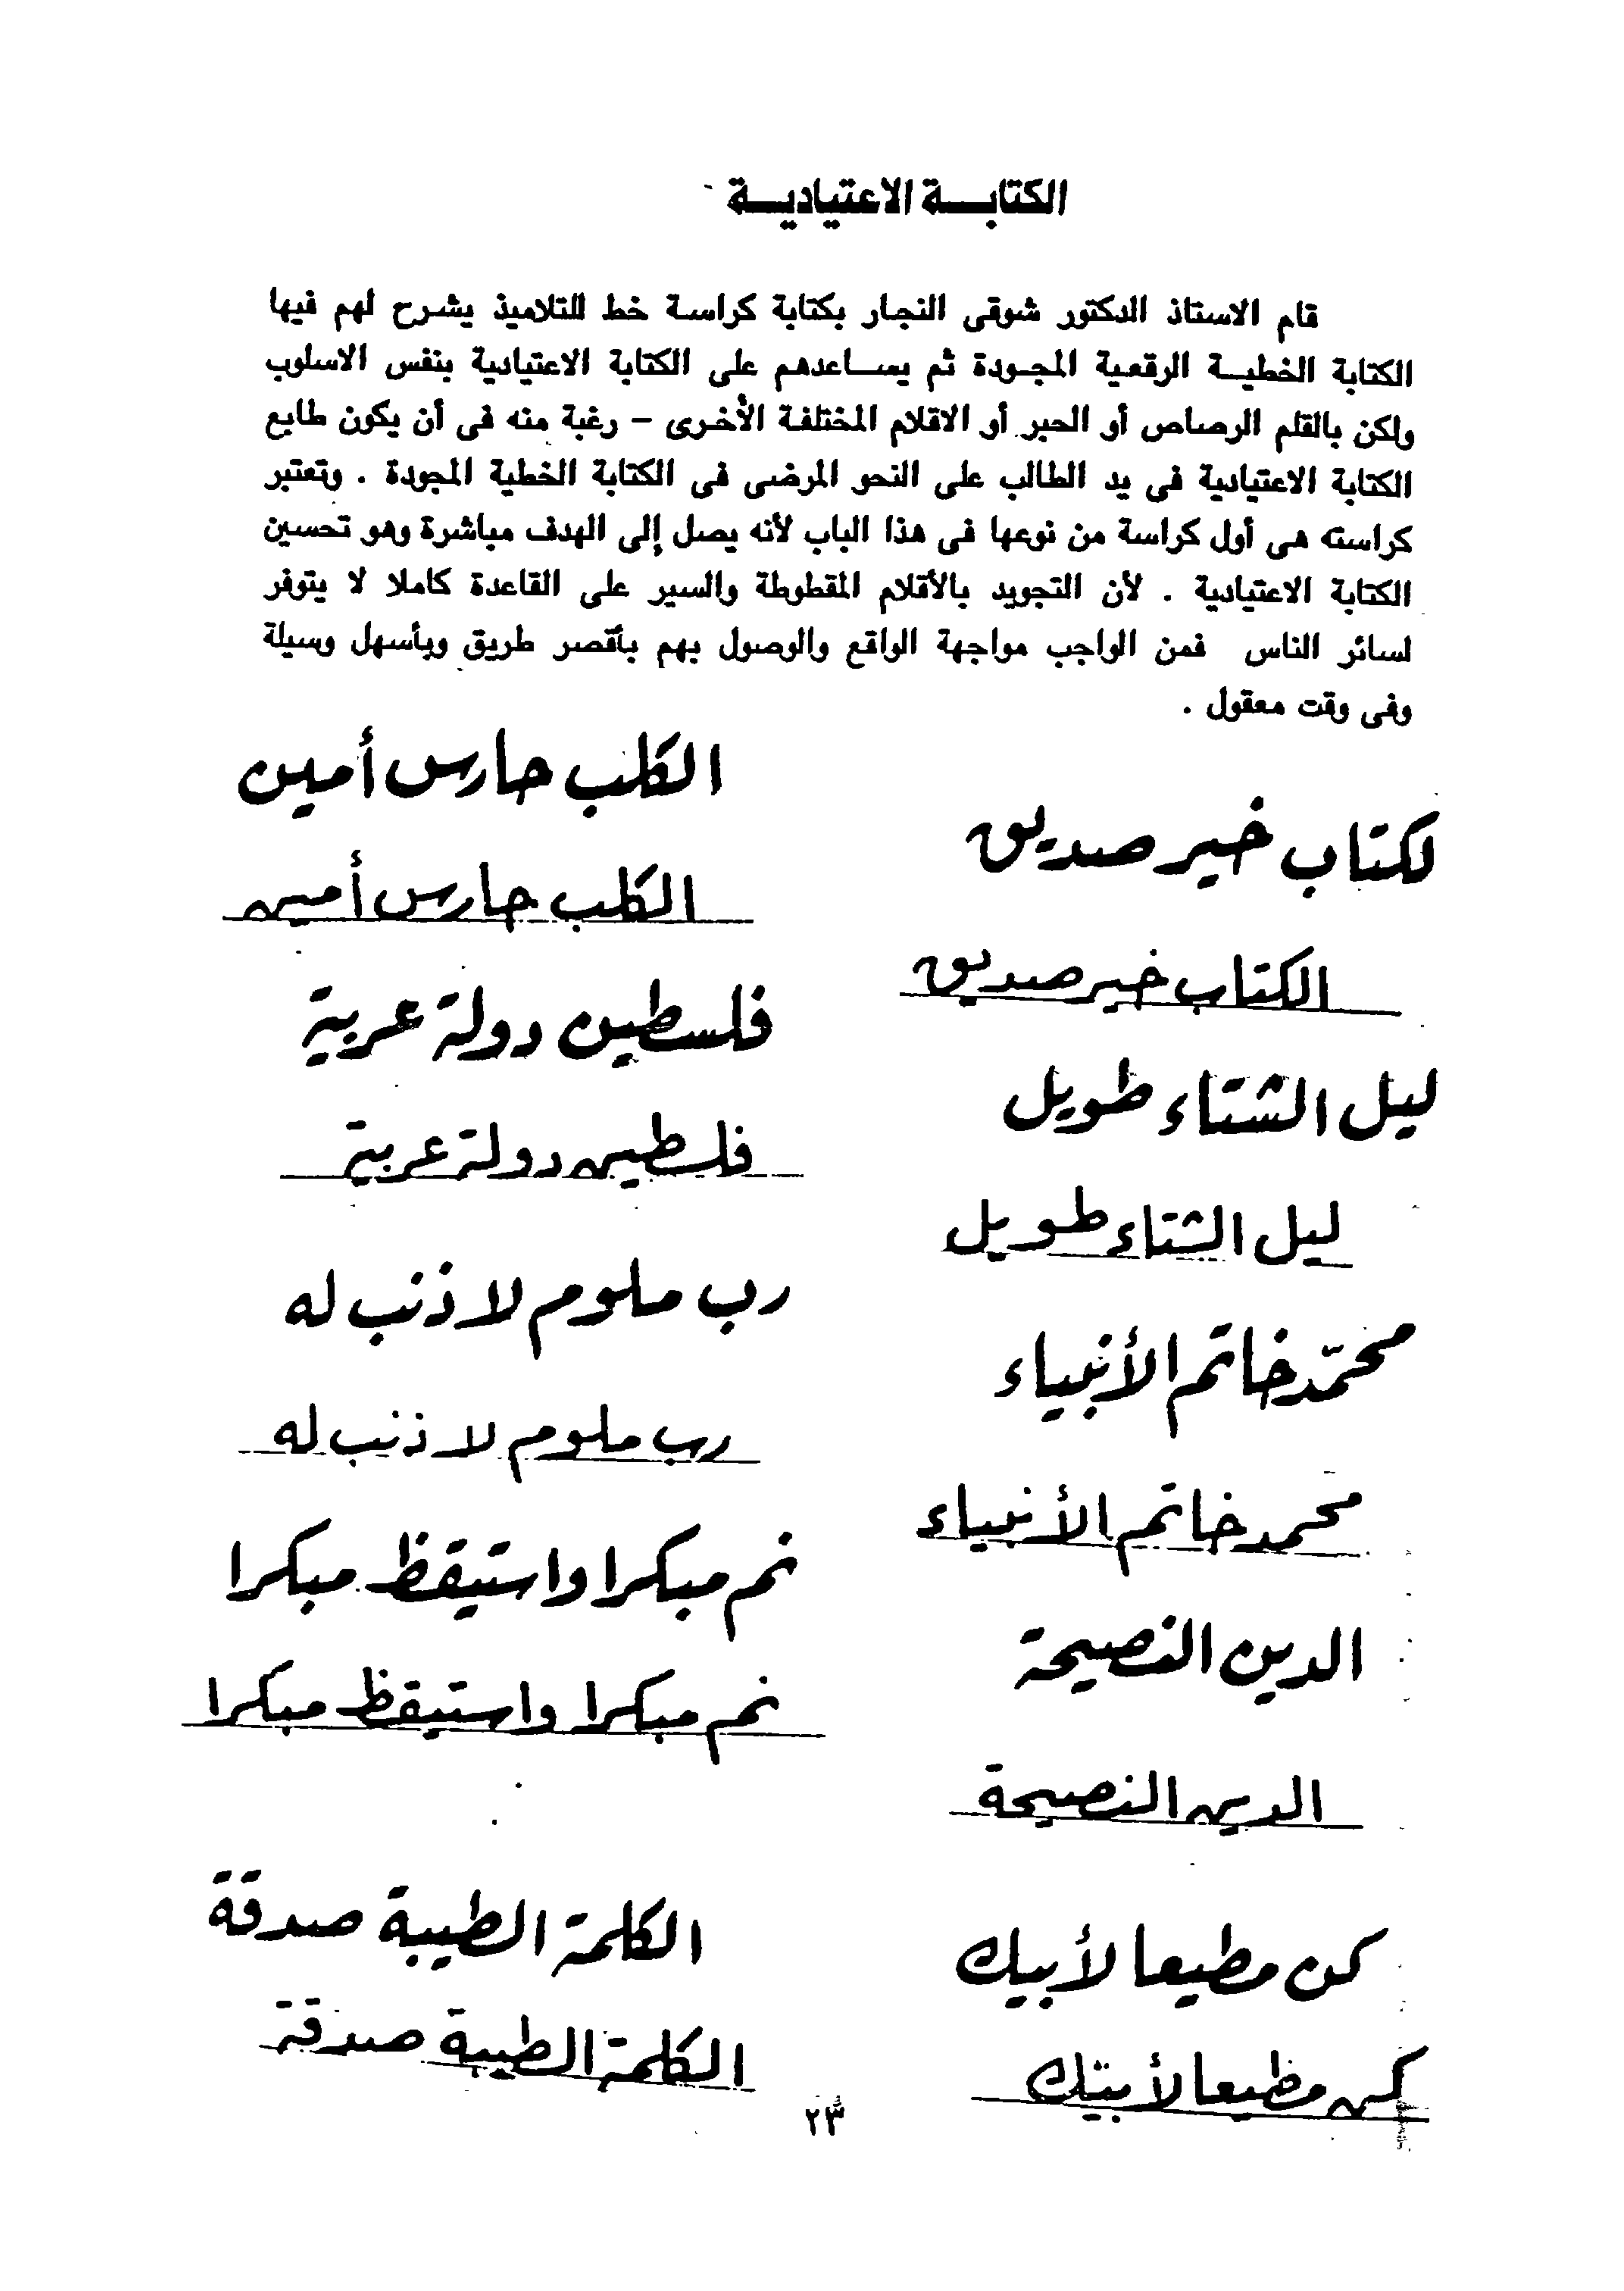 الكتابة الاعتيادية
قام الاستاذ الدكتور شوقى النجار بكتابة كراسة خط للتلاميذ يشرح لهم فيها
الكتابة الخطية الرقعية المجودة ثم يساعدهم على الكتابة الاعتيادية بنفس الاسلوب
ولكن بالقلم الرصاص أو الحبر أو الاقلام المختلفة الأخرى – رغبة منه فى أن يكون طابع
الكتابة الاعتيادية فى يد الطالب على النحو المرضى فى الكتابة الخطية المجودة . وتعتبر
كراسته هى أول كراسة من نوعها فى هذا الباب لأنه يصل إلى الهدف مباشرة وهو تحسين
الكتابة الاعتيادية . لأن التجويد بالأقلام المقطوطة والسير على القاعدة كاملا لا يتوفر
لسائر الناس فمن الواجب مواجهة الواقع والوصول بهم بأقصر طريق وبأسهل وسيلة
وفى وقت معقول .
لكتاب خير صديق
الكتاب خير صديق
ليل الشتاء طويل
ليل الشتاء طويل
محمّد خاتم الأنبياء
محمد خاتم الأنبياء
الدين النصيحة
الدين النصيحة
كن مطيعا لأبيك
كن مطيعا لأبيك
الكلب حارس أمين
الكلب حارس أمين
فلسطين دولة عربية
فلسطين دولة عربية
رب ملوم لا ذنب له
رب ملوم لا ذنب له
نم مبكرا واستيقظ مبكرا
نم مبكرا واستيقظ مبكرا
الكلمة الطيبة صدقة
الكلمة الطيبة صدقة
٢٣